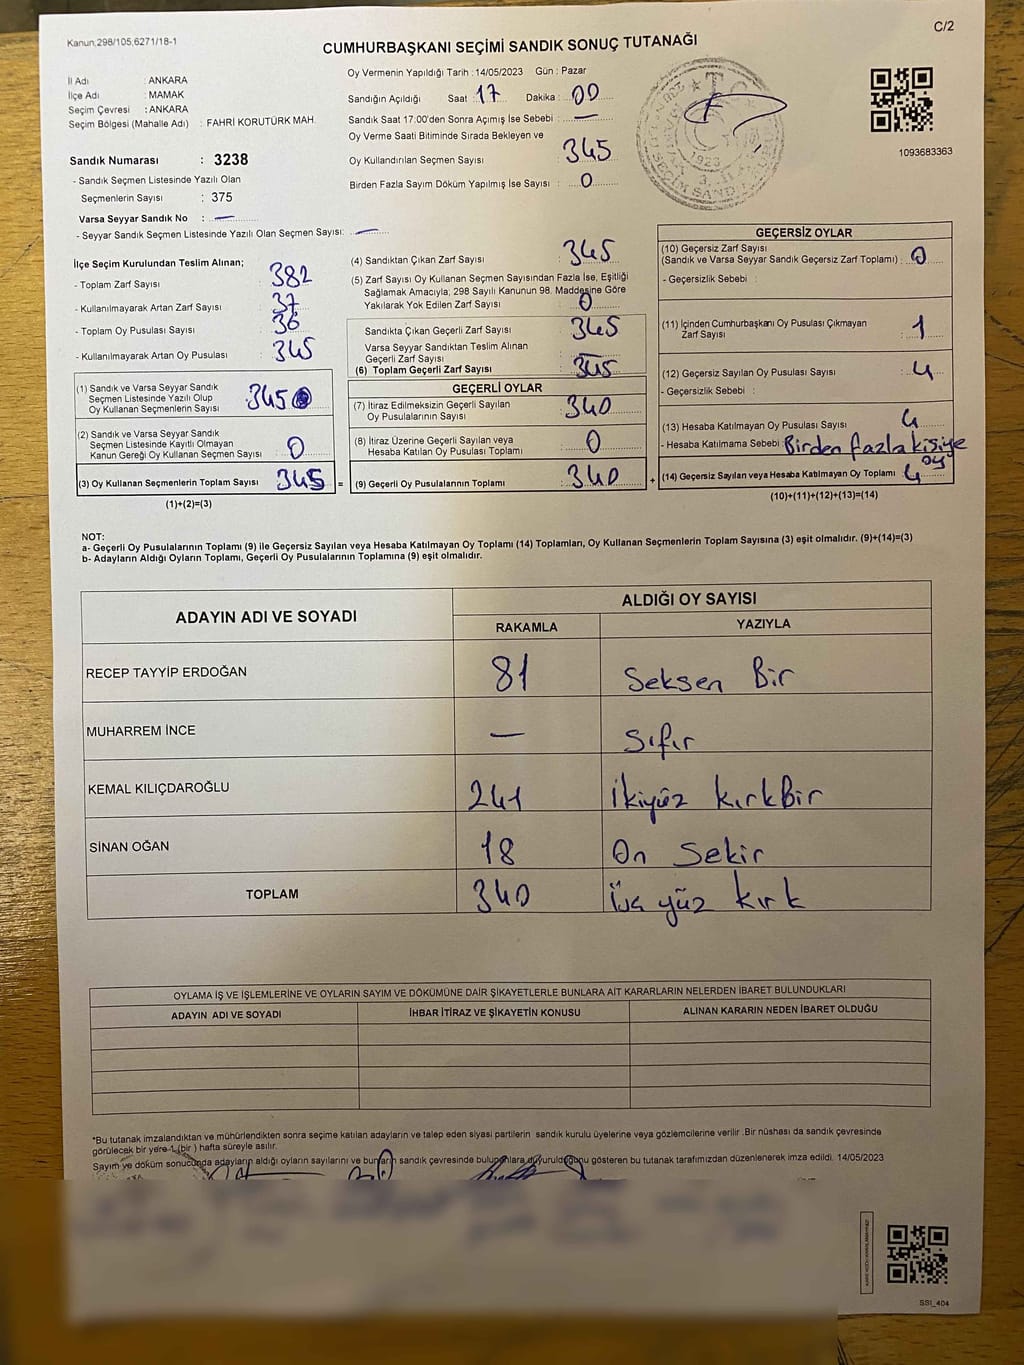 Kanun,298/105,6271/18-1
C/2
CUMHURBAŞKANI SEÇİMİ SANDIK SONUÇ TUTANAĞI
İl Adı : ANKARA
İlçe Adı : MAMAK
Seçim Çevresi : ANKARA
Seçim Bölgesi (Mahalle Adı) : FAHRİ KORUTÜRK MAH.
Sandık Numarası : 3238
- Sandık Seçmen Listesinde Yazılı Olan
Seçmenlerin Sayısı : 375
Varsa Seyyar Sandık No : —
- Seyyar Sandık Seçmen Listesinde Yazılı Olan Seçmen Sayısı: —
Oy Vermenin Yapıldığı Tarih : 14/05/2023 Gün : Pazar
Sandığın Açıldığı Saat : 17 Dakika : 00
Sandık Saat 17:00'den Sonra Açımış İse Sebebi : —
Oy Verme Saati Bitiminde Sırada Bekleyen ve
Oy Kullandırılan Seçmen Sayısı : 345
Birden Fazla Sayım Döküm Yapılmış İse Sayısı : 0
1923
1093683363
İlçe Seçim Kurulundan Teslim Alınan;
- Toplam Zarf Sayısı : 382
- Kullanılmayarak Artan Zarf Sayısı : 37
- Toplam Oy Pusulası Sayısı : 36
- Kullanılmayarak Artan Oy Pusulası : 345
(1) Sandık ve Varsa Seyyar Sandık
Seçmen Listesinde Yazılı Olup
Oy Kullanan Seçmenlerin Sayısı : 345
(2) Sandık ve Varsa Seyyar Sandık
Seçmen Listesinde Kayıtlı Olmayan
Kanun Gereği Oy Kullanan Seçmen Sayısı : 0
(3) Oy Kullanan Seçmenlerin Toplam Sayısı : 345 =
(1)+(2)=(3)
(4) Sandıktan Çıkan Zarf Sayısı : 345
(5) Zarf Sayısı Oy Kullanan Seçmen Sayısından Fazla İse, Eşitliği
Sağlamak Amacıyla; 298 Sayılı Kanunun 98. Maddesine Göre
Yakılarak Yok Edilen Zarf Sayısı : 0
Sandıkta Çıkan Geçerli Zarf Sayısı : 345
Varsa Seyyar Sandıktan Teslim Alınan
Geçerli Zarf Sayısı : —
(6) Toplam Geçerli Zarf Sayısı : 345
GEÇERLİ OYLAR
(7) İtiraz Edilmeksizin Geçerli Sayılan
Oy Pusulalarının Sayısı : 340
(8) İtiraz Üzerine Geçerli Sayılan veya
Hesaba Katılan Oy Pusulası Toplamı : 0
(9) Geçerli Oy Pusulalarının Toplamı : 340 +
GEÇERSİZ OYLAR
(10) Geçersiz Zarf Sayısı
(Sandık ve Varsa Seyyar Sandık Geçersiz Zarf Toplamı) : 0
- Geçersizlik Sebebi :
(11) İçinden Cumhurbaşkanı Oy Pusulası Çıkmayan
Zarf Sayısı : 1
(12) Geçersiz Sayılan Oy Pusulası Sayısı : 4
- Geçersizlik Sebebi :
(13) Hesaba Katılmayan Oy Pusulası Sayısı : 4
- Hesaba Katılmama Sebebi : Birden fazla kişiye
oy
(14) Geçersiz Sayılan veya Hesaba Katılmayan Oy Toplamı : 4
(10)+(11)+(12)+(13)=(14)
NOT:
a- Geçerli Oy Pusulalarının Toplamı (9) ile Geçersiz Sayılan veya Hesaba Katılmayan Oy Toplamı (14) Toplamları, Oy Kullanan Seçmenlerin Toplam Sayısına (3) eşit olmalıdır. (9)+(14)=(3)
b- Adayların Aldığı Oyların Toplamı, Geçerli Oy Pusulalarının Toplamına (9) eşit olmalıdır.
ADAYIN ADI VE SOYADI ALDIĞI OY SAYISI
RAKAMLA YAZIYLA
RECEP TAYYİP ERDOĞAN 81 Seksen Bir
MUHARREM İNCE — Sıfır
KEMAL KILIÇDAROĞLU 241 İkiyüz kırkBir
SİNAN OĞAN 18 On Sekiz
TOPLAM 340 Üç yüz kırk
OYLAMA İŞ VE İŞLEMLERİNE VE OYLARIN SAYIM VE DÖKÜMÜNE DAİR ŞİKAYETLERLE BUNLARA AİT KARARLARIN NELERDEN İBARET BULUNDUKLARI
ADAYIN ADI VE SOYADI İHBAR İTİRAZ VE ŞİKAYETİN KONUSU ALINAN KARARIN NEDEN İBARET OLDUĞU
*Bu tutanak imzalandıktan ve mühürlendikten sonra seçime katılan adayların ve talep eden siyasi partilerin sandık kurulu üyelerine veya gözlemcilerine verilir .Bir nüshası da sandık çevresinde
görülecek bir yere 1 (bir ) hafta süreyle asılır.
Sayım ve döküm sonucunda adayların aldığı oyların sayılarını ve bunların sandık çevresinde bulunanlara duyurulduğunu gösteren bu tutanak tarafımızdan düzenlenerek imza edildi. 14/05/2023
SSI_404